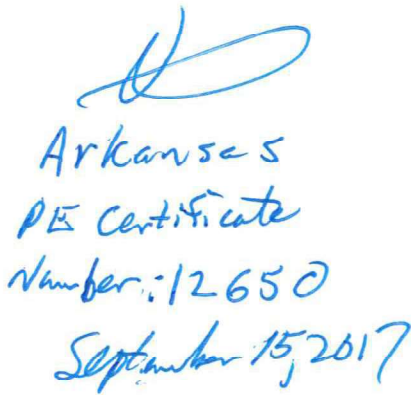 Arkansas
PE Certificate
Number: 12650
September 15, 2017